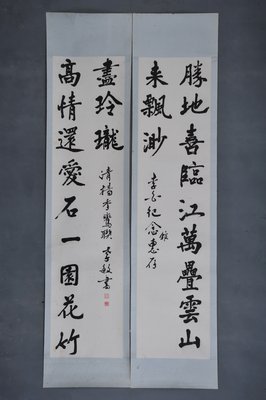 勝地喜臨江萬疊雲山
来飄渺
李白紀念館惠存
高情還愛石一園花竹
盡玲瓏
清楊季鸞聯 李敏書